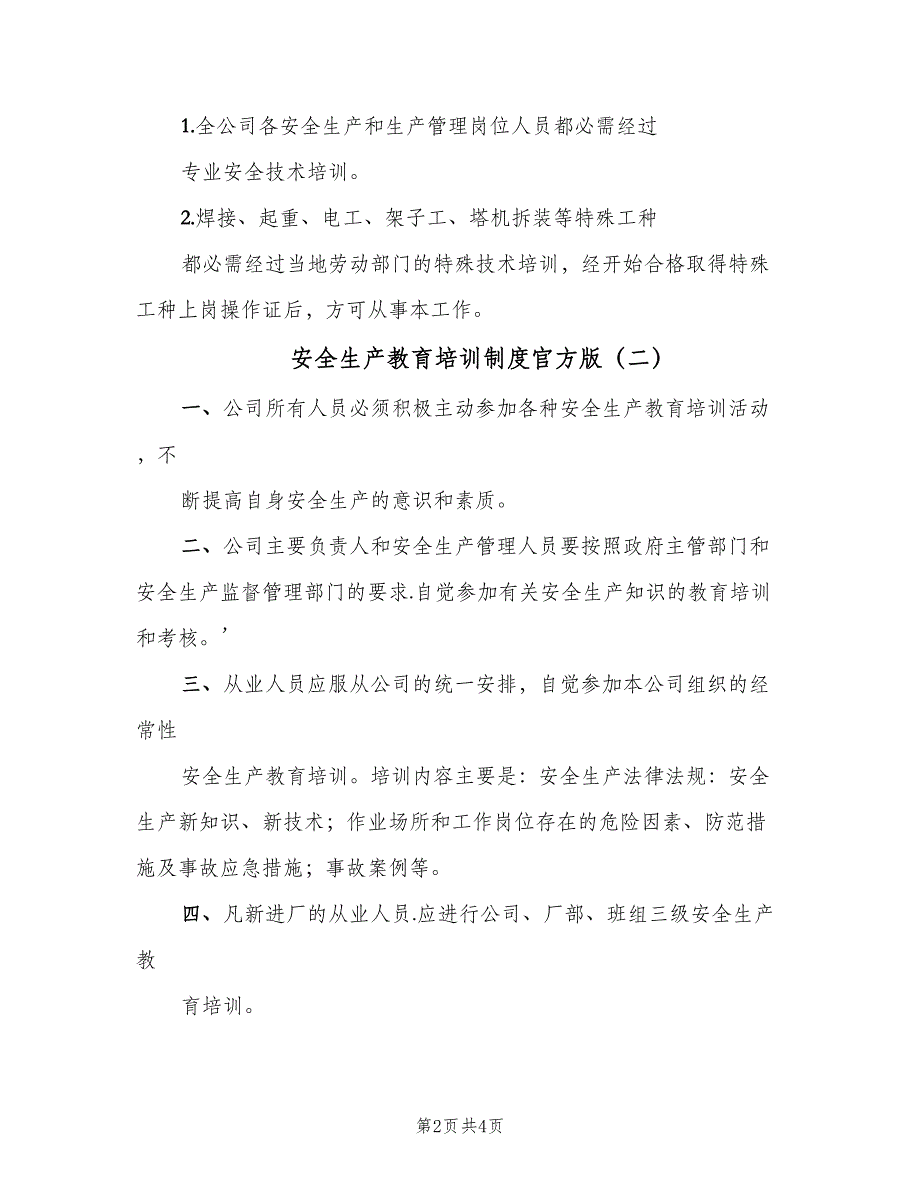 1.全公司各安全生产和生产管理岗位人员都必需经过
专业安全技术培训。
2.焊接、起重、电工、架子工、塔机拆装等特殊工种
都必需经过当地劳动部门的特殊技术培训，经开始合格取得特殊
工种上岗操作证后，方可从事本工作。
安全生产教育培训制度官方版（二）
一、公司所有人员必须积极主动参加各种安全生产教育培训活动
，不
断提高自身安全生产的意识和素质。
二、公司主要负责人和安全生产管理人员要按照政府主管部门和
安全生产监督管理部门的要求.自觉参加有关安全生产知识的教育培训
和考核。’
三、从业人员应服从公司的统一安排，自觉参加本公司组织的经
常性
安全生产教育培训。培训内容主要是：安全生产法律法规：安全
生产新知识、新技术；作业场所和工作岗位存在的危险因素、防范措
施及事故应急措施；事故案例等。
四、凡新进厂的从业人员.应进行公司、厂部、班组三级安全生产
教
育培训。
第2页共4页